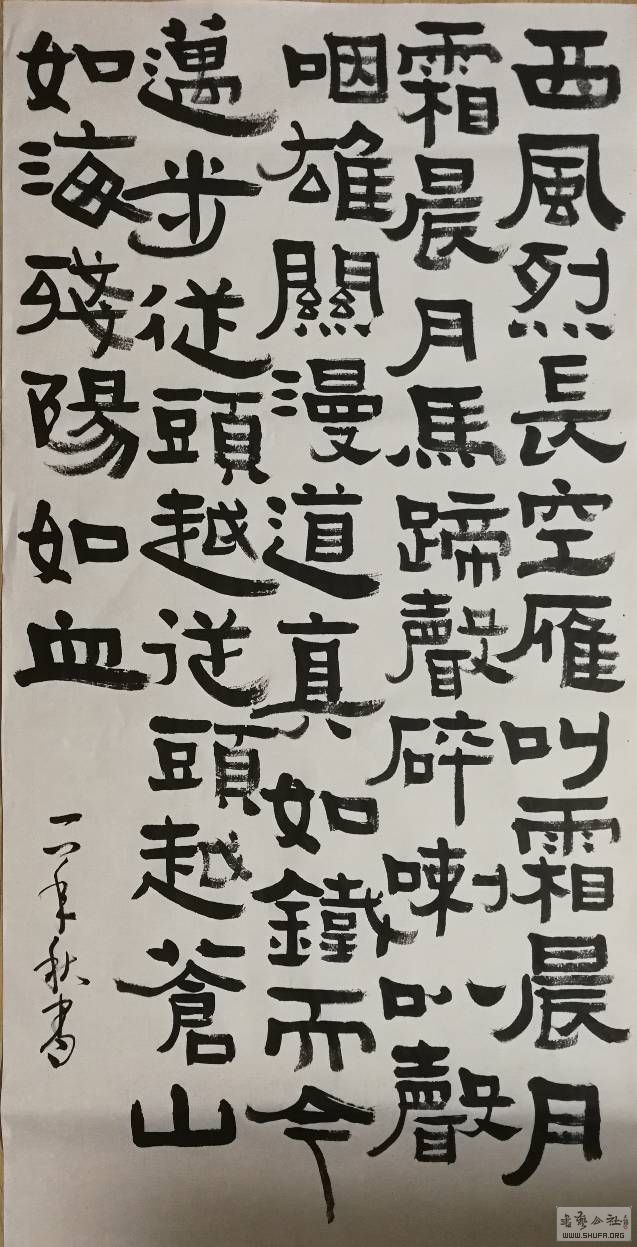 西風烈長空雁叫霜晨月
霜晨月馬蹄聲碎喇叭聲
咽雄關漫道真如鐵而今
邁步従頭越従頭越蒼山
如海殘陽如血
年秋書
书艺公社
WWW.SHUFA.ORG